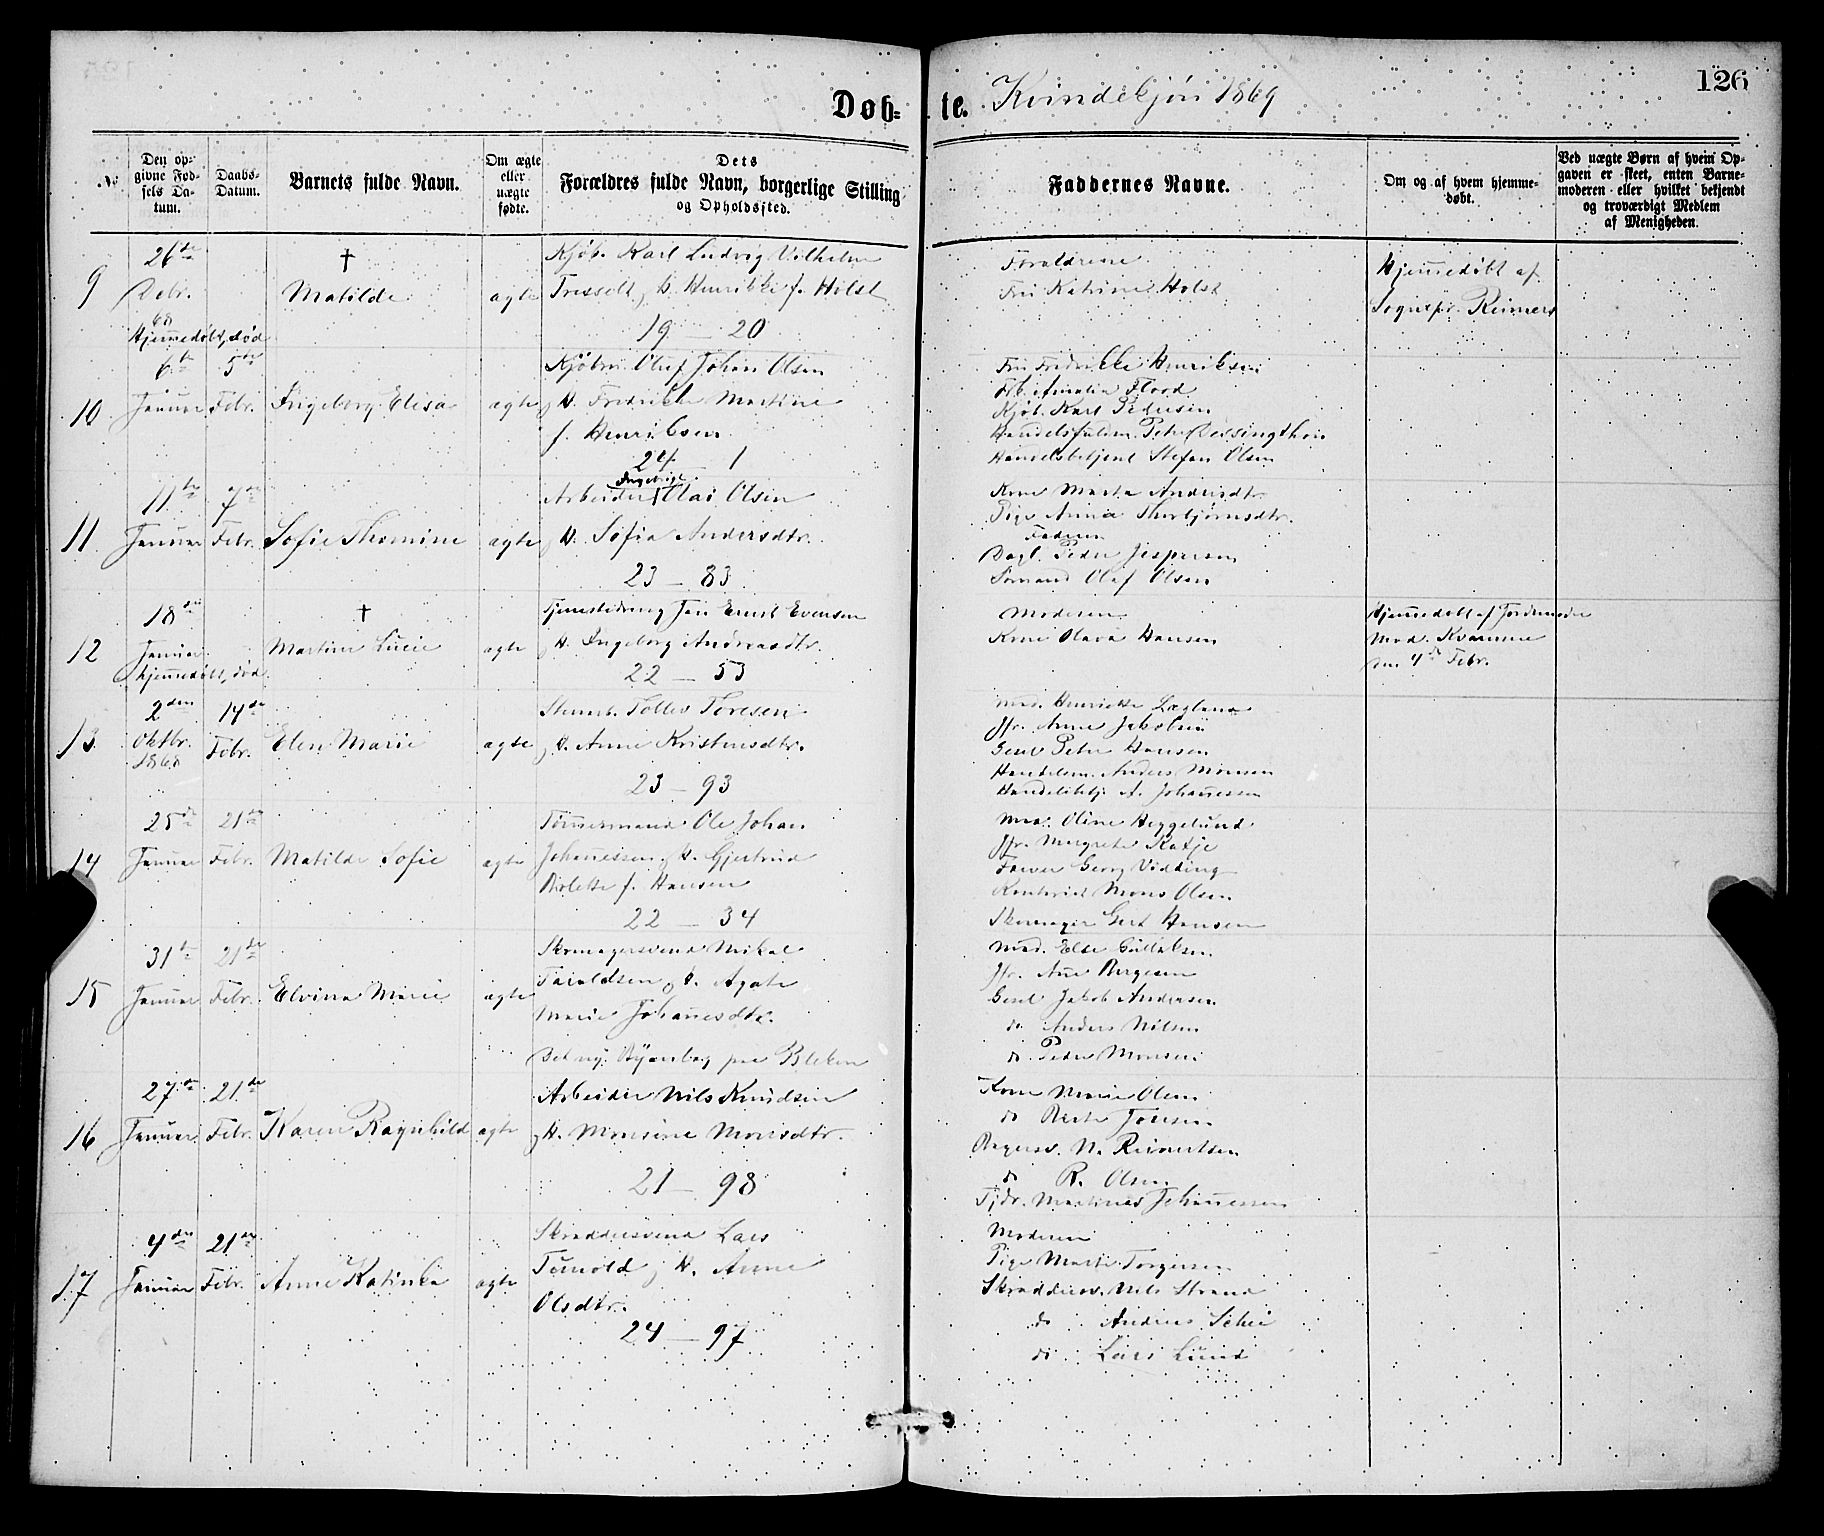 126
Døb= te. Kvindekjøn 1869
№
Den op-
givne Fød-
sels Da-
tum.
Daabs-
Datum.
Barnets fulde Navn.
Om ægte
eller
uægte
fødte.
Dets
Forældres fulde Navn, borgerlige Stilling
og Opholdssted.
Faddernes Navne.
Om og af hvem hjemme-
døbt.
Ved uægte Børn af hvem Op-
gaven er skeet, enten Barne-
moderen eller hvilket bekjendt
og troværdigt Medlem
af Menigheden.
9
26de
Debr.
68
Hjemmedøbt, død
†
Matilde
ægte
Kjøb. Karl Ludvig Vilhelm
Tresselt, H. Henrikke f. Holst
19 — 20
Forældrene
Frü Katrine Holst
Hjemmedøbt af
Sognepr. Reimers
10
6te
Januar
5te
Febr.
Ingeborg Elisa
ægte
Kjøbm. Oluf Johan Olsen
H. Fredrikke Martine
f. Henriksen
24 1
Frü Fredrikke Henriksen
Frk. Amalia Flood
Kjøb. Karl Pedersen
Handelsfuldm. Peter
Handelsbetjent Stefan Olsen
11
11te
Januar
7de
Febr.
Sofie Thomine
ægte
Ingebrigt
Arbeider Olai Olsen
H. Sofia Andersdtr.
23 — 83
Kone Marta Andersdtr.
Pige Anna Thorbjørnsdtr.
Faderen
Dagl. Peder Jespersen
Sømand Olaf Olsen
12
18de
Januar
hjemmedøbt, død.
†
Martine Lucie
ægte
Tjenestedreng Jan Ernst Evensen
H. Ingeborg Andreasdtr.
22 — 53
Moderen
Kone Olava Hansen
Hjemmedøbt af Jordemoder
Mad. Kvamme
4de Febr.
13
2den
Oktbr.
1868
14de
Febr.
Elen Marie
ægte
Stenarb. Tollev Toresen
H. Anne Kristensdtr.
23 — 93
Mad. Henriette
Jfr. Anne Jakobsen
Gesel Peter Hansen
Handelsm. Anders Monsen
Handelsbetj. A. Johannessen
14
25de
Januar
21de
Febr.
Matilde Sofie
ægte
Tømmermand Ole Johan
Johannessen, H. Gjertrud
Nolette f. Hansen
22 — 34
Mad. Oline Heggelund
Jfr. Margrete Katje
Farver Georg Vidding
Kontorist Mons Olsen
Skomager Gert Hansen
15
31te
Januar
21de
Febr.
Elvina Marie
ægte
Skomagersvend Mikal
Taraldsen, H. Agate
Marie Johannesdtr.
Det ny paa Bleken
Mad. Else Gullaksen
Jfr. Ane Børgesen
Gesel Jakob Andersen
do Anders Nilsen
do Peder Monsen
16
27de
Januar
21de
Febr.
Karen Ragnhild
ægte
Arbeider Nils Knudsen
H. Monsine Monsdtr.
21 — 98
Kone Marie Olsen
do Berte Jonsen
Bagersv. N. Reinertsen
do R. Olsen
Tjdr. Martinus Johannessen
17
4de
Januar
21de
Febr.
Anne Katinka
ægte
Skræddersvend Lars
Tunold, H. Anne
Olsdtr.
24 — 97
Moderen
Pige Marte Torgersen
Skræddersv. Nils Strand
do Anders Schei
do Lars Lund